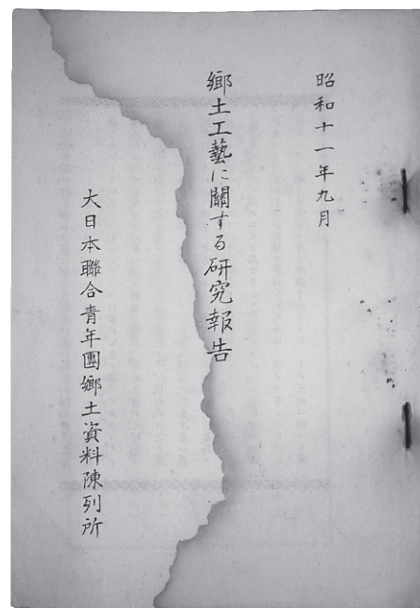 昭和十一年九月
郷土工藝に關する研究報告
大日本聯合青年團郷土資料陳列所